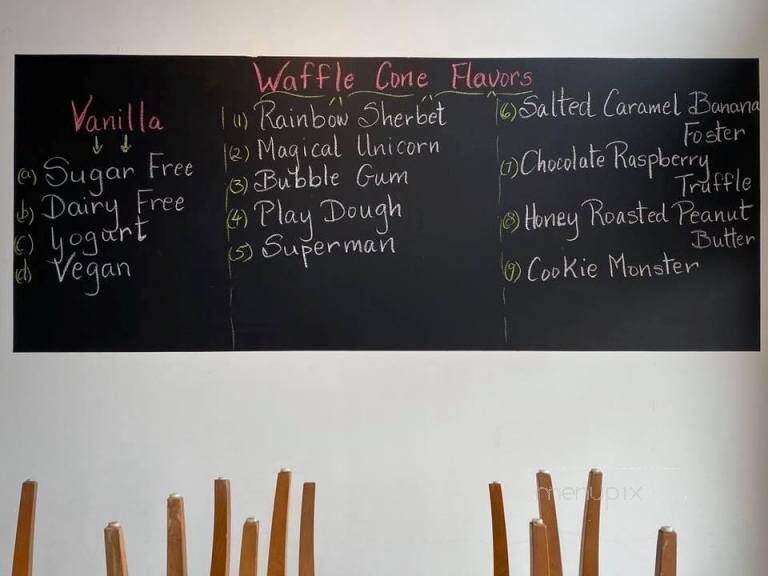 Waffle Cone Flavors
Vanilla
(a) Sugar Free
(b) Dairy Free
(c) Yogurt
(d) Vegan
(1) Rainbow Sherbet
(2) Magical Unicorn
(3) Bubble Gum
(4) Play Dough
(5) Superman
(6) Salted Caramel Banana
Foster
(7) Chocolate Raspberry
Truffle
(8) Honey Roasted Peanut
Butter
(9) Cookie Monster
menupix